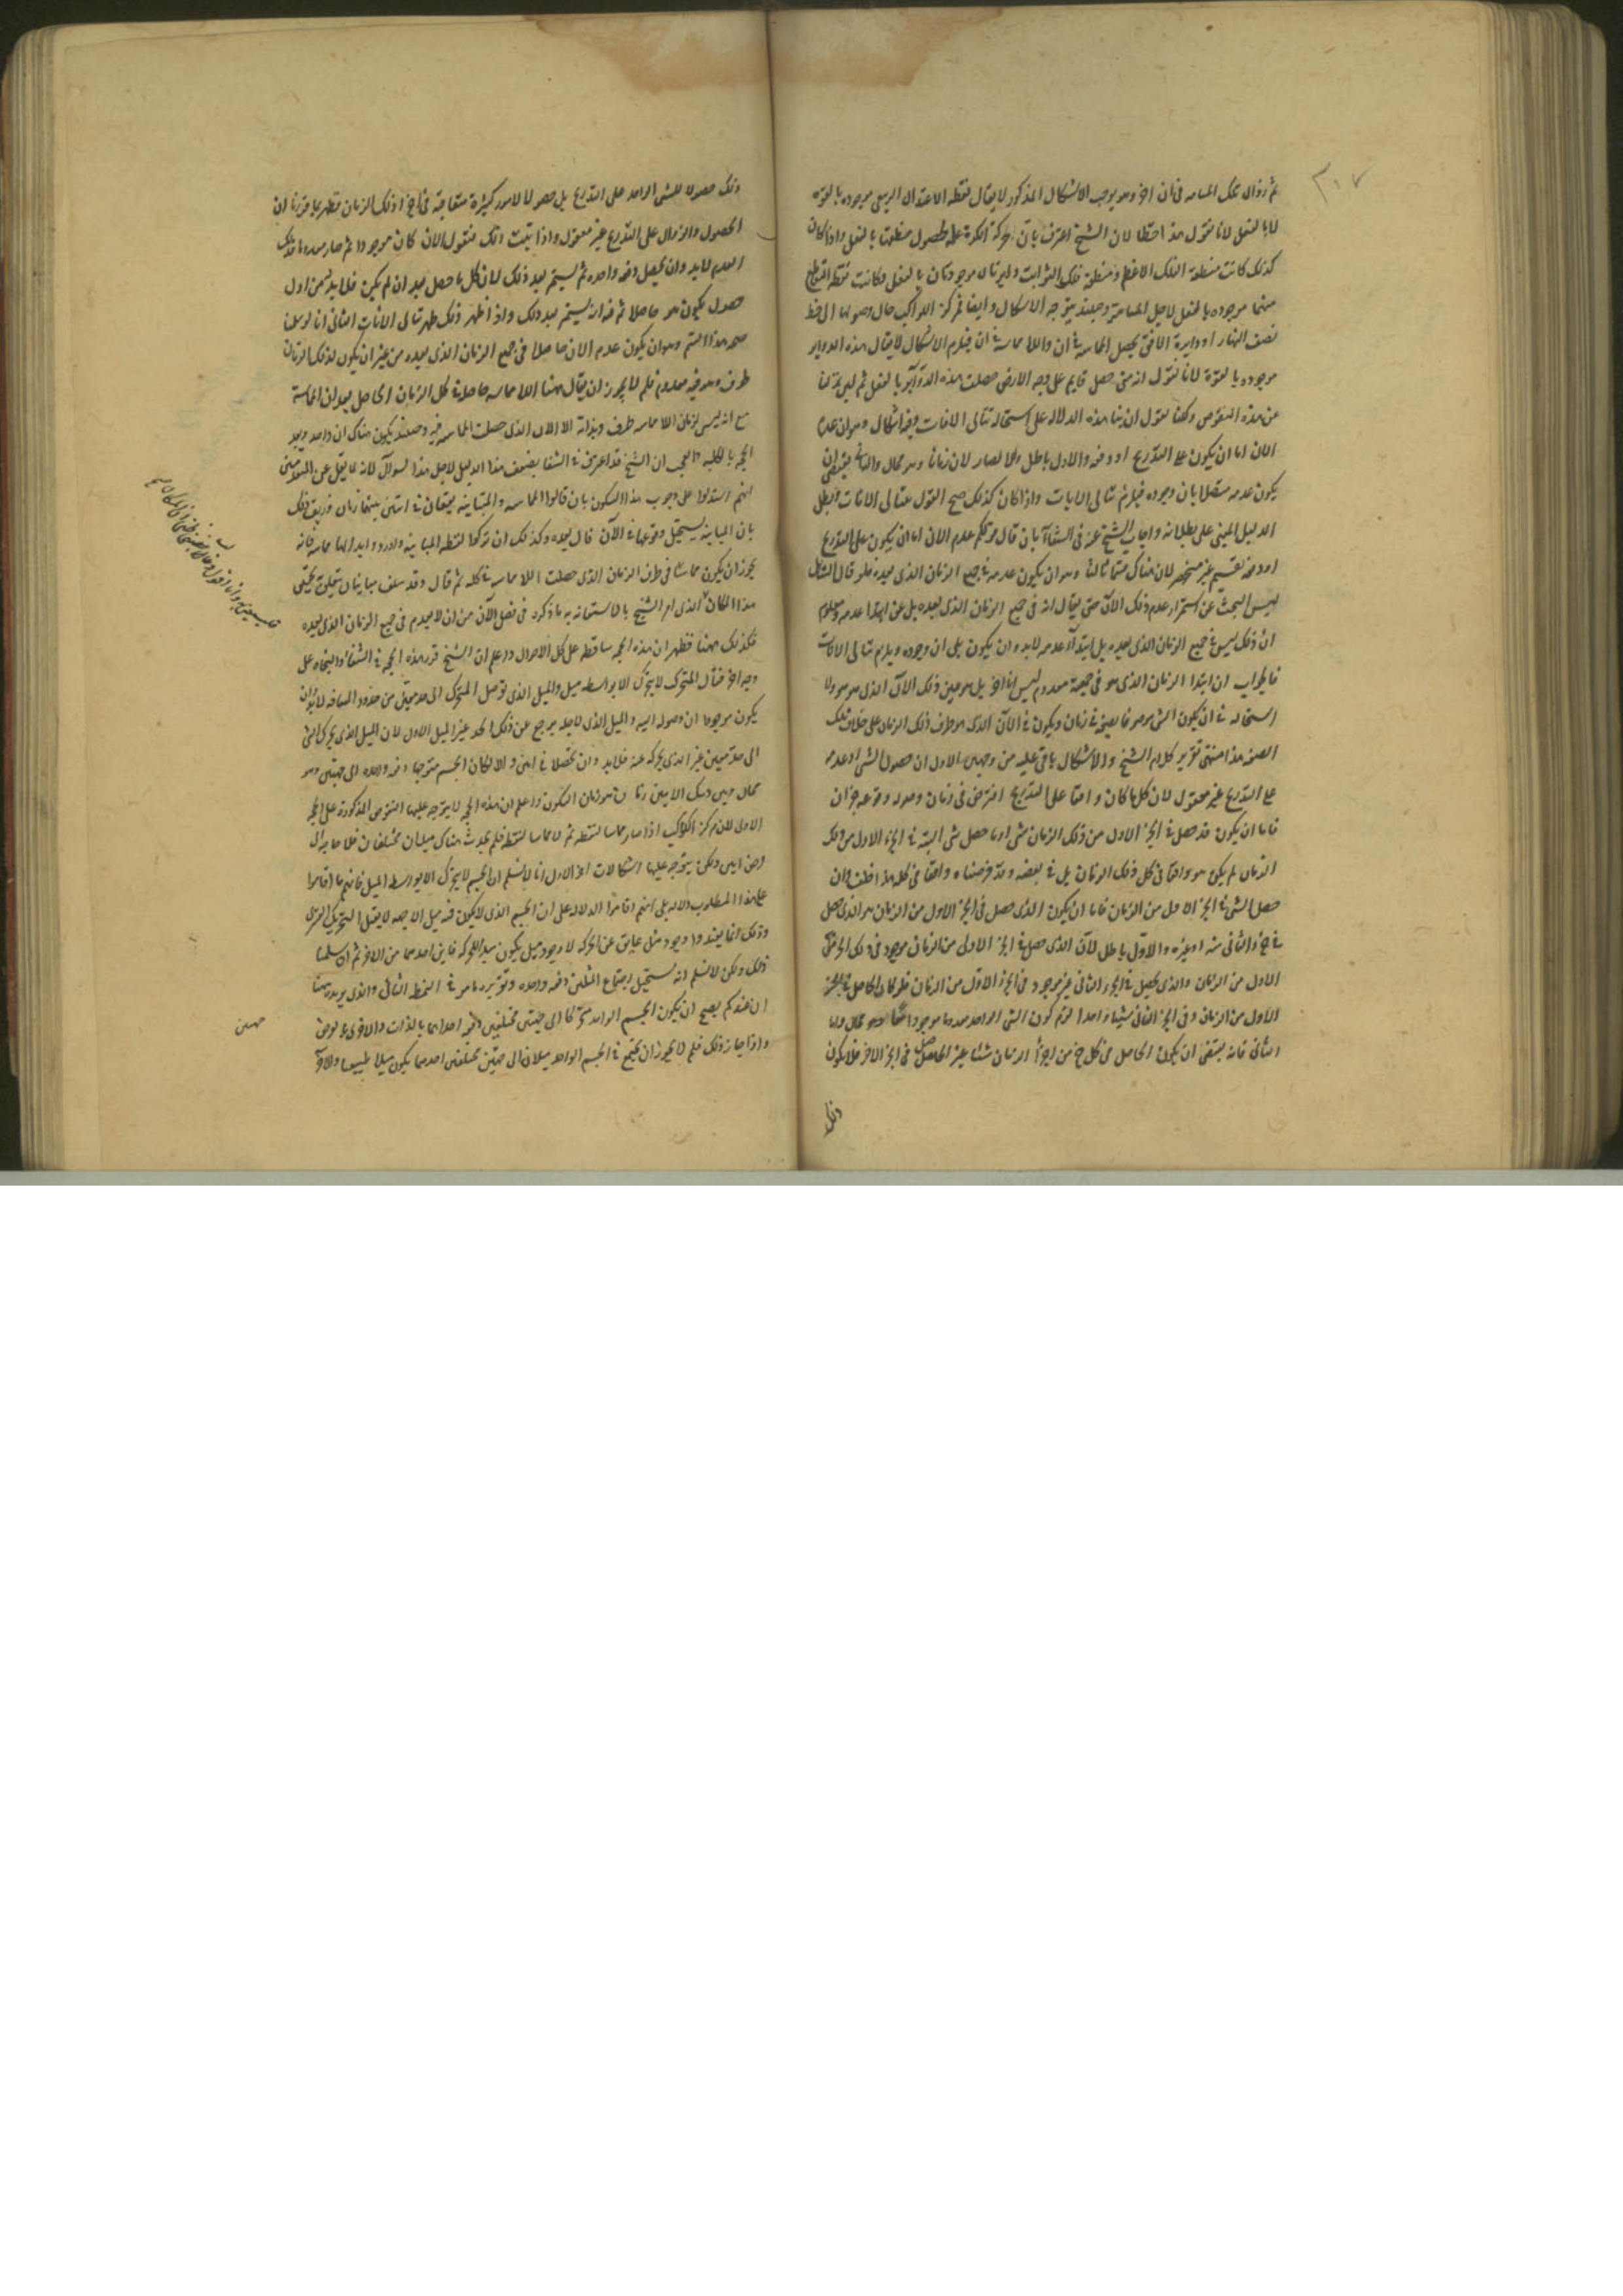 ٣٠٧
ثم زوال تلك المسامه فى ان اخر وهو يوجب الاشكال المذكور لا يقال نقطه الاعتدال الربيعى موجوده بالقوه
لا بالفعل لانا نقول هذا خطا لان الشيخ اعترف بان حركة الكرة علة لحصول منطقتها بالفعل واذا كان
كذلك كانت منطقة الفلك الاعظم ومنطقة فلك الثوابت دايرتان موجودتان بالفعل وكانت نقطه التقاطع
منهما موجوده بالفعل لاجل المسامتة وحينئذ يتوجه الاشكال وايضا فمركز الكواكب حال وصولها الى خط
نصف النهار او دايرة الافق يحصل المماسة فى ان واللا مماسة فى ان فيلزم الاشكال لا يقال هذه الدواير
موجوده بالقوة لانا نقول انه متى حصل قايم على وجه الارض حصلت هذه الدواير بالفعل ثم لئن نزلنا
عن هذه النقوض ولكنا نقول ان بنا هذه الدلاله على استحاله تتالى الانات وفيه اشكال وهو ان عدم
الان اما ان يكون على التدريج او دفعه والاول باطل والا لصار الان زمانا وهو محال والثانى يقتضى ان
يكون عدمه متصلا بان وجوده فيلزم تتالى الانات واذا كان كذلك صح القول بتتالى الانات وبطل
الدليل المبنى على بطلانه واجاب الشيخ عنه فى الشفا بان قال قولكم عدم الان اما ان يكون على التدريج
او دفعه تقسيم غير منحصر لان هناك قسما ثالثا وهو ان يكون عدمه فى جميع الزمان الذى بعده فلو قال السائل
ليس البحث عن استمرار عدم ذلك الان حتى يقال انه فى جميع الزمان الذى بعده بل عن ابتدا عدمه ومعلوم
ان ذلك ليس فى جميع الزمان الذى بعده بل ابتدا عدمه لابد وان يكون على ان وجوده ويلزم تتالى الانات
فالجواب ان ابتدا الزمان الذى هو فى جميعه معدوم ليس انا اخر بل هو عين ذلك الان الذى هو موجود ولا
استحاله فى ان يكون الشى موصوفا بصفه فى زمان ويكون فى الان الذى هو طرف ذلك الزمان على خلاف تلك
الصفه هذا منتهى تقرير كلام الشيخ والاشكال باق عليه من وجهين الاول ان حصول الشى او عدمه
على التدريج غير معقول لان كل ما كان واقعا على التدريج افترض فى زمان وصوله وقوعه جزان
فاما ان يكون قد حصل فى الجز الاول من ذلك الزمان شى او ما حصل شى البته فى الجزء الاول من ذلك
الزمان لم يكن هو واقعا فى كل ذلك الزمان بل فى بعضه وقد فرضناه واقعا فى كله هذا خلف وان
حصل الشى فى الجز الاول من الزمان فاما ان يكون الذى حصل فى الجز الاول من الزمان هو الذى حصل
فى جزء الثانى منه او غيره والاول باطل لان الذى حصل فى الجز الاول من الزمان موجود فى ذلك الجزء
الاول من الزمان والذى يحصل فى الجزء الثانى غير موجود فى الجزء الاول من الزمان فلو كان الحاصل فى الجز
الاول من الزمان وفى الجز الثانى شيئا واحدا لزم كون الشى الواحد معدوما موجودا معا وهو محال واما
الثانى فانه يقتضى ان يكون الحاصل فى كل جز من اجزا الزمان شيئا غير الحاصل فى الجز الاخر فلا يكون
ذلك
ذلك حصولا للشى الواحد على التدريج بل حصولا لامور كثيرة متعاقبة فى اجزا ذلك الزمان فظهر بما قررنا ان
الحصول والزوال على التدريج غير معقول واذا ثبت ذلك فنقول الان كان موجودا ثم صار معدوما فذلك
العدم لابد وان يحصل دفعه واحده ثم يستمر بعد ذلك لان كل ما حصل بعد ان لم يكن فلا بد له من اول
حصول يكون هو حاصلا ثم انه يستمر بعد ذلك واذا ظهر ذلك ظهر تتالى الانات الثانى انا لو سلمنا
صحه هذا القسم وهو ان يكون عدم الان حاصلا فى جميع الزمان الذى بعده من غير ان يكون لذلك الزمان
طرف وهو فيه معدوم فلم لا يجوز ان يقال ههنا اللا مماسه حاصلة فى كل الزمان الحاصل بعد ان المماسة
مع انه ليس لزمان اللا مماسه طرف وبداية الا الان الذى حصلت المماسه فيه وحينئذ يكون هناك ان واحد ويبطل
الحجه بالكليه والعجب ان الشيخ قد اعترف فى الشفا بضعف هذا الدليل لاجل هذا السوال لانه لا نقل عن المتقدمين
انهم استدلوا على وجوب هذا السكون بان قالوا المماسه والمباينه يقعان فى انين بينهما زمان فزيف ذلك
بان المباينه يستحيل وقوعها فى الان قال بعده وكذلك ان تركوا لفظه المباينه واوردوا بدلها مماسه فانه
يجوز ان يكون مماسا فى طرف الزمان الذى حصلت اللا مماسه فى كله ثم قال وقد سلف منا بيان يتعلق بتحقيق
هذا المكان الذى امر الشيخ بالاستعانه به ما ذكره فى فصل الان من ان الان يعدم فى جميع الزمان الذى بعده
فكذلك ههنا فظهر ان هذه الحجه ساقطه على كل الاحوال واعلم ان الشيخ قرر هذه الحجه فى الشفا والنجاه على
وجه اخر فقال المتحرك لا يتحرك الا بواسطه ميل والميل الذى توصل المتحرك الى حد معين من حدود المسافه لابد ان
يكون موجودا ان وصوله اليه والميل الذى لاجله يرجع عن ذلك الحد غير الميل الاول لان الميل الذى يحرك الشى
الى حد معين غير الذى يحركه عنه فلابد وان يحصلا فى انين والا لكان الجسم متوجها دفعه واحده الى جهتين وهو
محال وبين ذينك الانين زمان هو زمان السكون واعلم ان هذه الحجه لا يتوجه عليها النقوض المذكورة على الحجه
الاولى لان مركز الكوكب اذا صار مماسا لنقطه ثم لا مماسا لنقطه فلم يحدث هناك ميلان مختلفان فلا حاجه الى
فرض انين ولكن يتوجه عليها اشكالات اخر الاول انا لا نسلم ان الجسم لا يتحرك الا بواسطه الميل فانهم ما اقاموا
على هذا المطلوب دلاله بلى انهم اقاموا الدلاله على ان الجسم الذى لا يكون فيه ميل الى جهه لا يقبل التحريك القسرى
وذلك انما يفيد وجود مبدا عايق عن الحركه لا وجود ميل يكون مبدا للحركه فاين احدهما من الاخر ثم ان سلمنا
ذلك ولكن لا نسلم انه يستحيل اجتماع الميلين دفعه واحده وتقريره ما مر فى النمط الثانى والذى يريده ههنا
ان عندكم يصح ان يكون الجسم الواحد متحركا الى جهتين مختلفتين دفعه احداهما بالذات والاخرى بالعرض
واذا جاز ذلك فلم لا يجوز ان يجتمع فى الجسم الواحد ميلان الى جهتين مختلفتين احدهما يكون ميلا طبيعيا والاخر